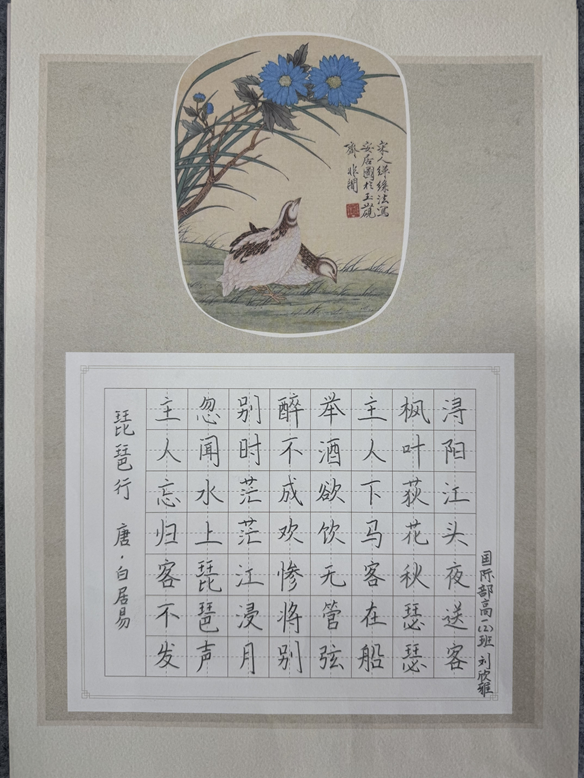 宋人緙絲法寫
安居圖於玉山硯
齋 非闇
浔阳江头夜送客
枫叶荻花秋瑟瑟
主人下马客在船
举酒欲饮无管弦
醉不成欢惨将别
别时茫茫江浸月
忽闻水上琵琶声
主人忘归客不发
琵琶行 唐·白居易
国际部高一(2)班 刘欣雅